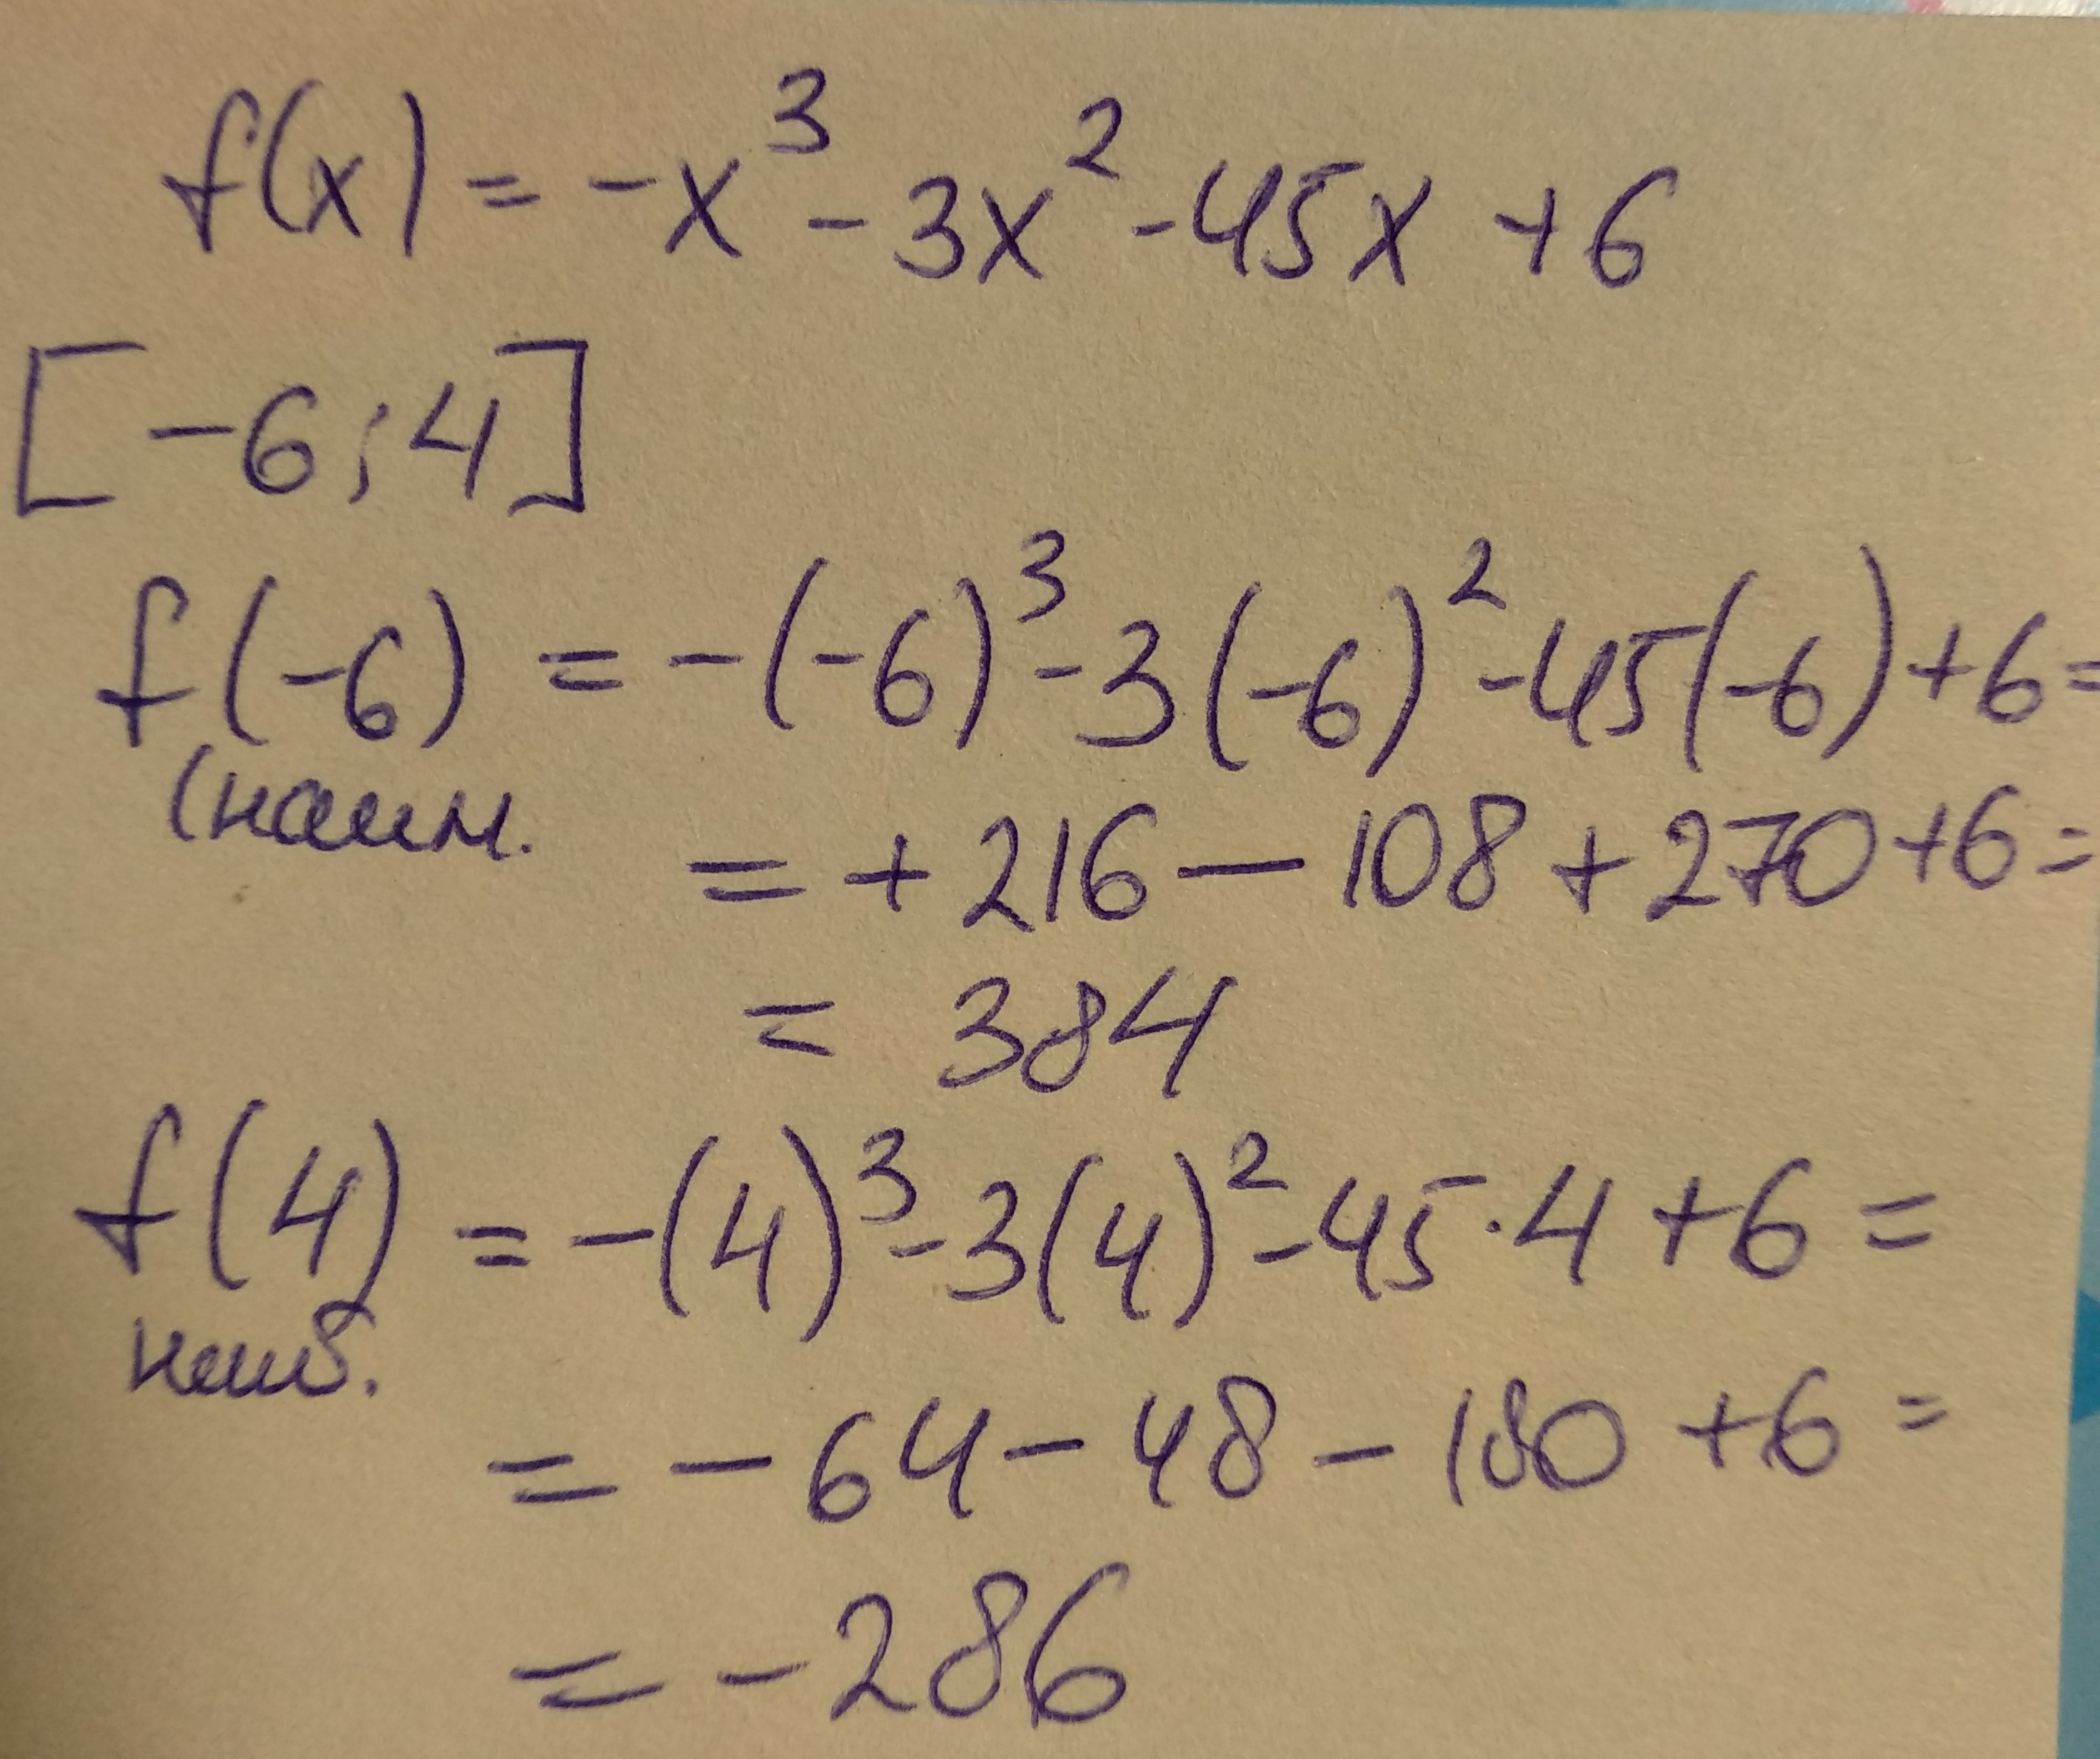 f(x) = -x³ - 3x² - 45x + 6
[-6; 4]
f(-6) = -(-6)³ - 3(-6)² - 45(-6) + 6 =
(наим.
= + 216 - 108 + 270 + 6 =
= 384
f(4) = -(4)³ - 3(4)² - 45 · 4 + 6 =
наиб.
= - 64 - 48 - 180 + 6 =
= - 286